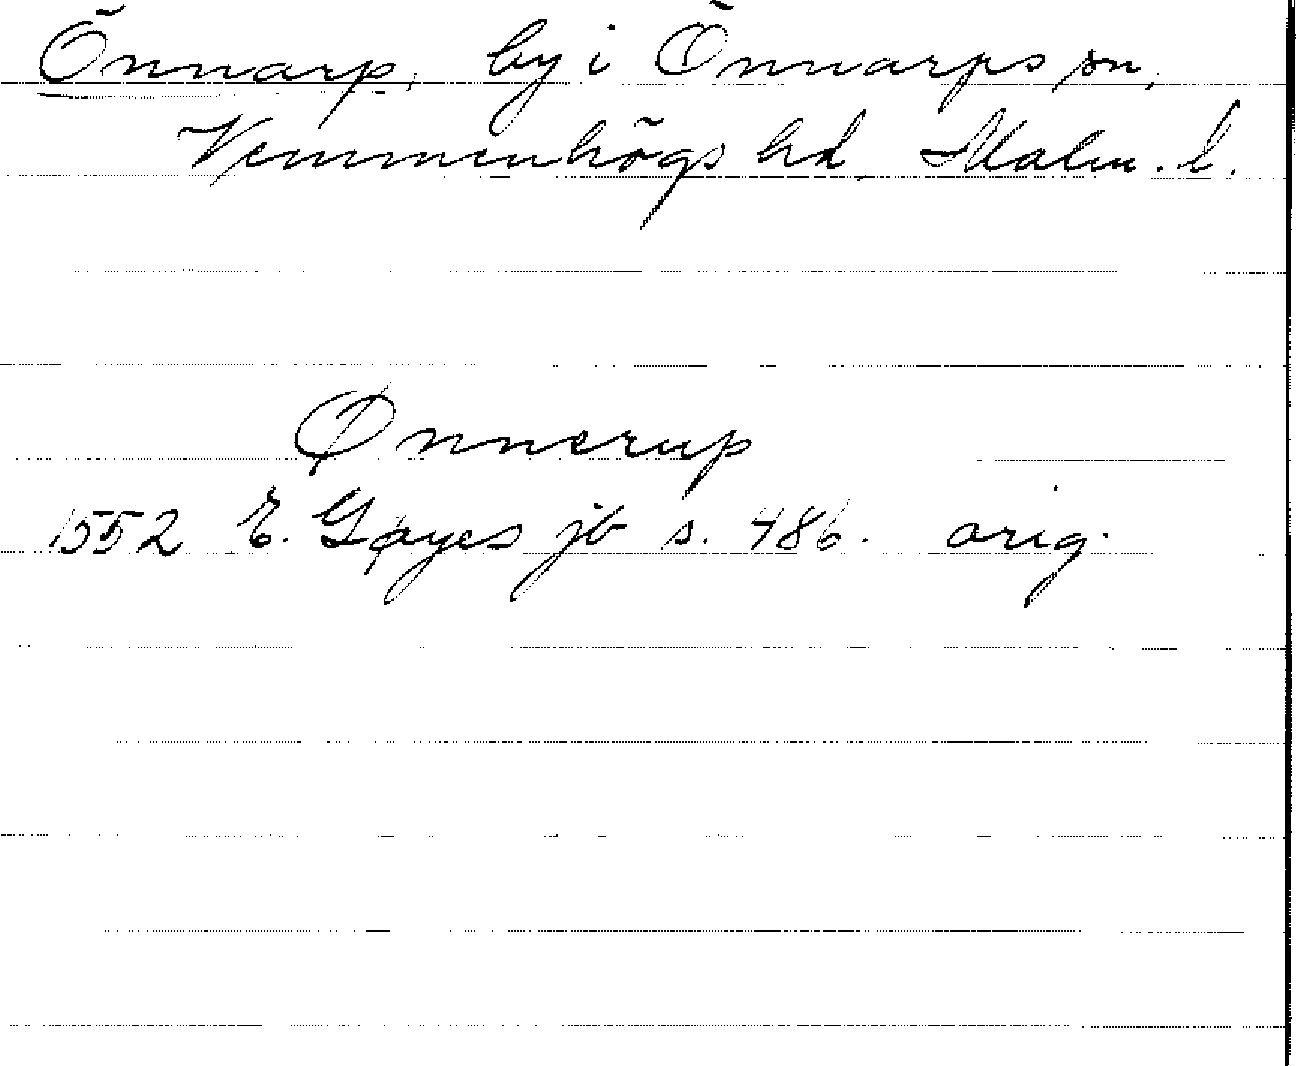 Önnarp, by i Önnarps sn,
Vemmenhögs hd, Malm. l.
Ønnerup
1552 E. Gøyes jb s. 486. orig.